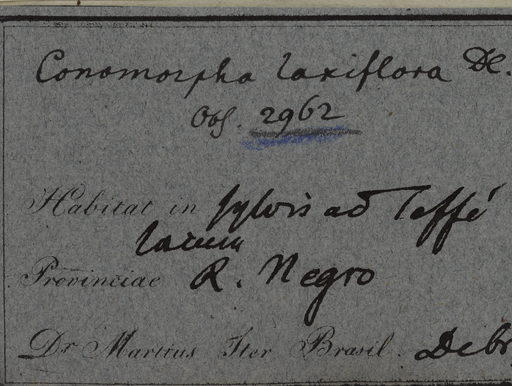 Conomorpha laxiflora DC.
Obs. 2962
Habitat in sylvis ad Teffé
lacum
Provinciae R. Negro
Dr Martius Iter Brasil. Debr